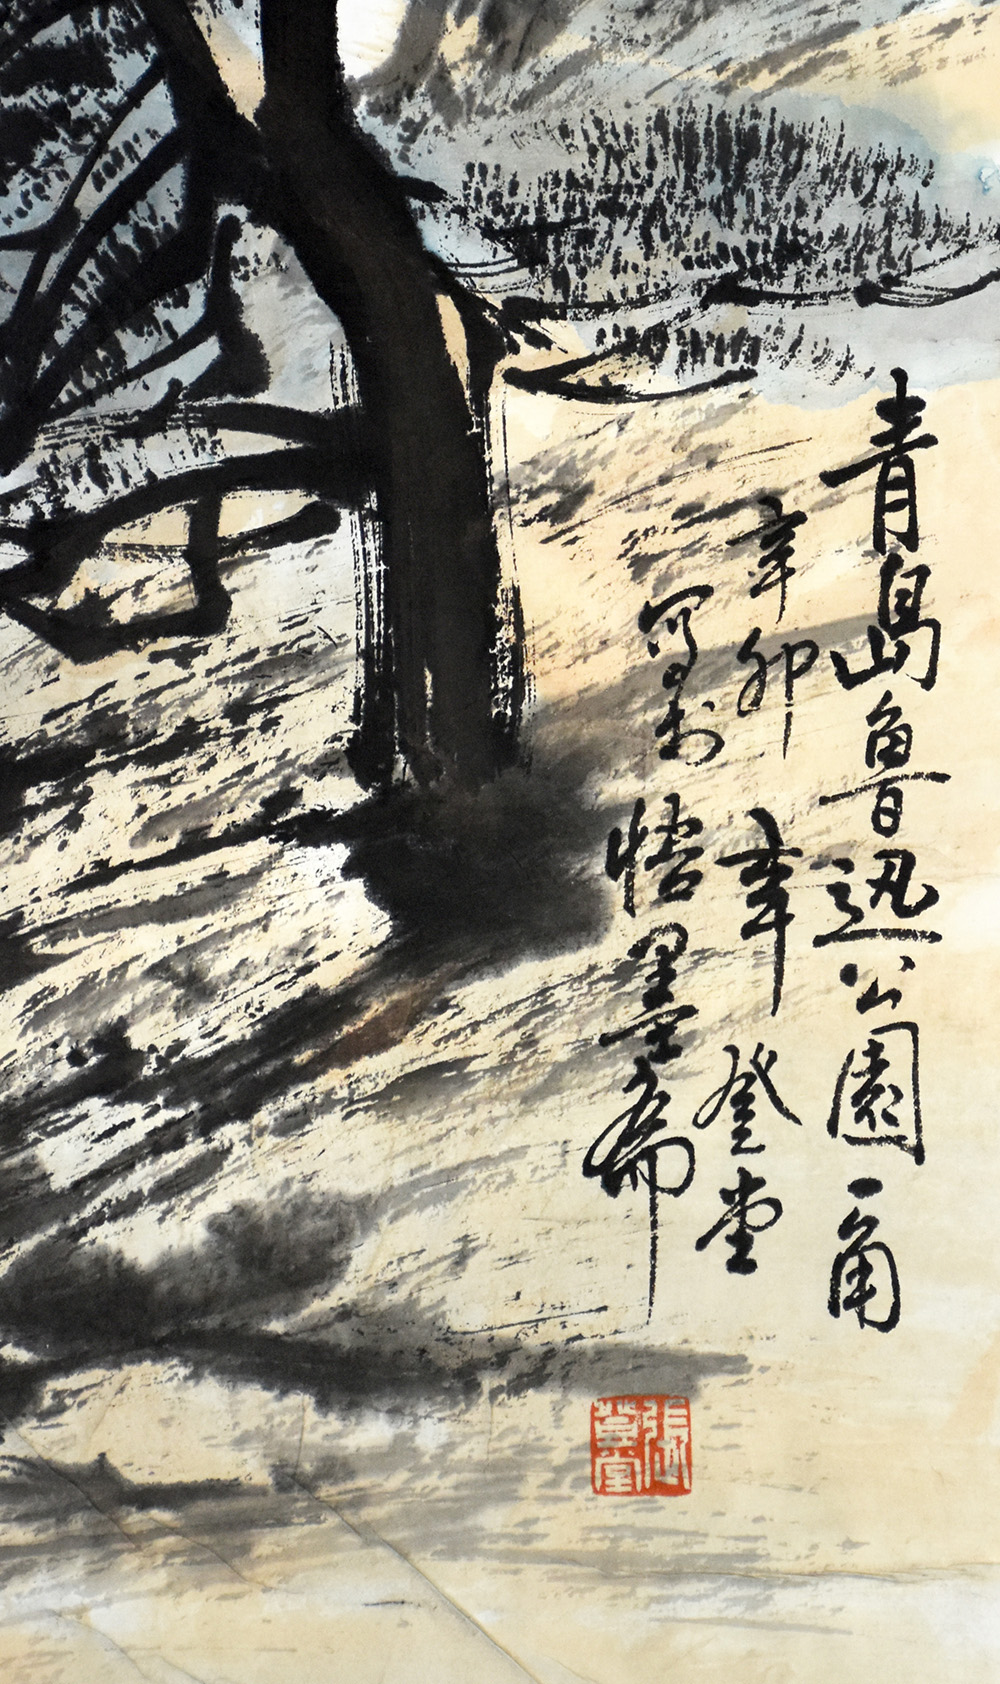 青島魯迅公園一角
辛卯年登堂
寫於悟墨齋
張登堂